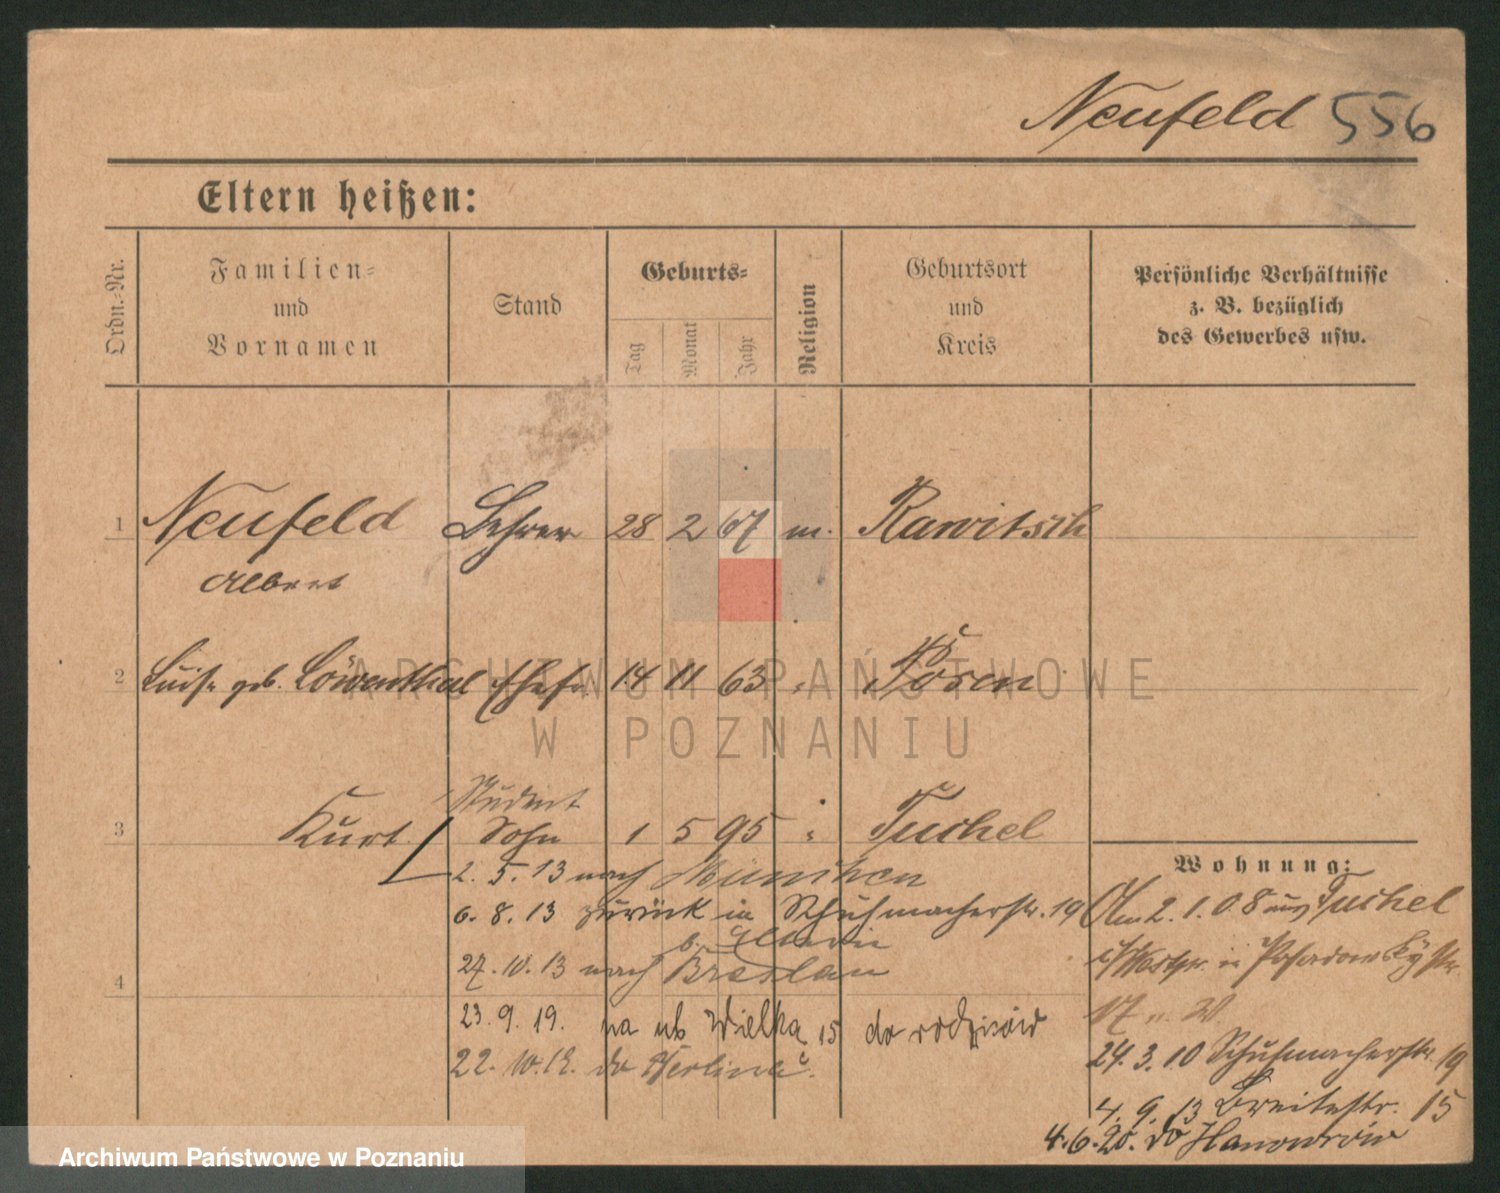 Neufeld 556
Eltern heißen:
Ordn.-Nr.
Familien-
und
Vornamen
Stand
Geburts-
Tag
Monat
Jahr
Religion
Geburtsort
und
Kreis
Persönliche Verhältnisse
z. B. bezüglich
des Gewerbes usw.
1 Neufeld Lehrer 28 2 67 m. Rawitsch
Albert
2 Luise geb. Löwenthal Ehefr. 14 11 63 " Posen
Student
3 Kurt Sohn 1 5 95 " Tuchel
2. 5. 13 nach München
6. 8. 13 zurück in Schuhmacherstr. 19
b. Eltern
27. 10. 13 nach Breslau
4
23. 9. 19. na ul. Wielka 15 do rodziców
22. 10. 19. do Berlina.
Wohnung:
Am 2. 1. 08 aus Tuchel
i/Westpr. in Posadowskystr.
17 n. W.
24. 3. 10 Schuhmacherstr. 19
4. 9. 13 Breitestr. 15
4. 6. 20. do
ARCHIWUM PAŃSTWOWE
W POZNANIU
Archiwum Państwowe w Poznaniu